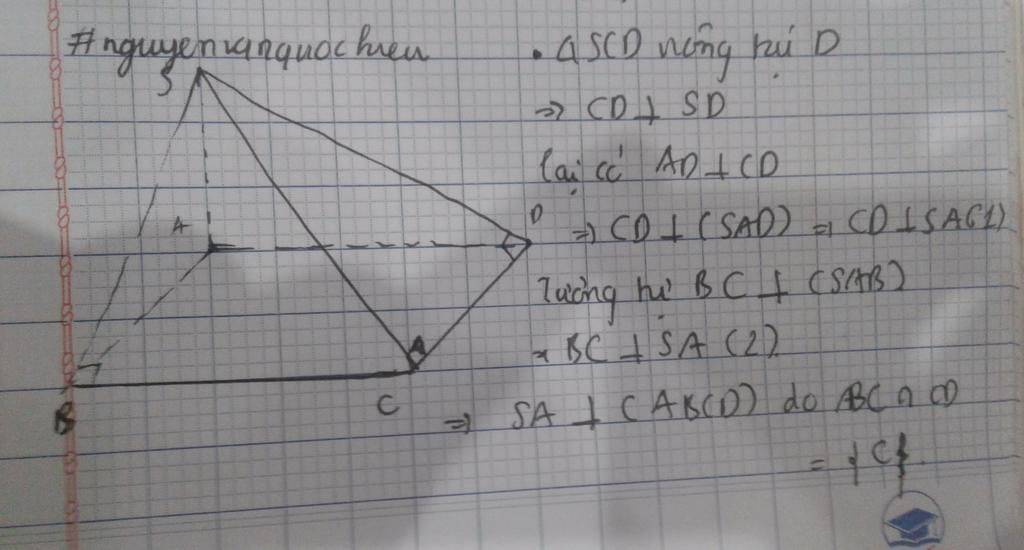 #nguyenvanquochieu
S
A
D
B
C
. Δ SCD vuông tại D
=> CD ⊥ SD
lại có AD ⊥ CD
=> CD ⊥ (SAD) => CD ⊥ SA (1)
Tương tự BC ⊥ (SAB)
=> BC ⊥ SA (2)
=> SA ⊥ (ABCD) do BC ∩ CD
= {C}.